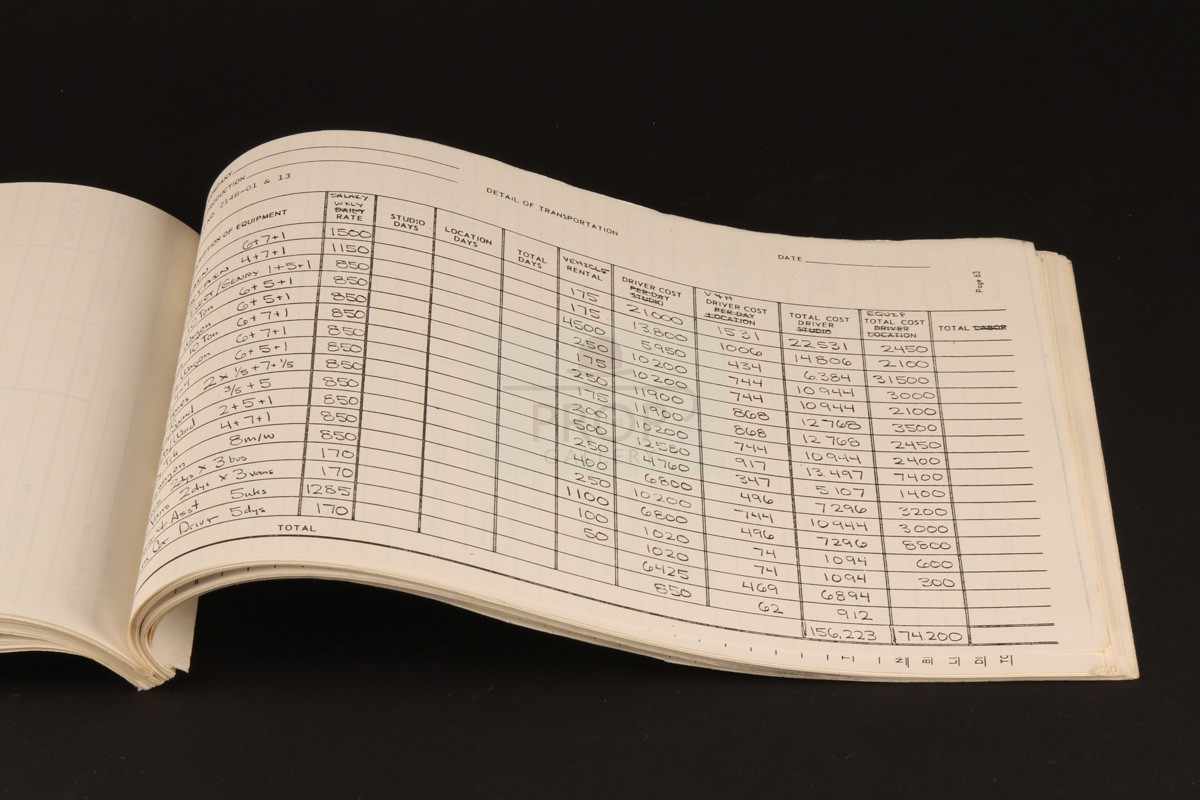 2148-01 & 13
DETAIL OF TRANSPORTATION
DATE
Page 63
OF EQUIPMENT SALARY WKLY DAILY RATE STUDIO DAYS LOCATION DAYS TOTAL DAYS VEHICLE RENTAL DRIVER COST PER DAY STUDIO V&H DRIVER COST PER DAY LOCATION TOTAL COST DRIVER STUDIO EQUIP TOTAL COST DRIVER LOCATION TOTAL LABOR
6+7+1 1500 175 21000 1531 22,531 2450
4+7+1 1150 175 13800 1006 14806 2100
1+5+1 850 4500 5950 434 6,384 31500
10 Ton 6+5+1 850 250 10200 744 10944 3000
6+5+1 850 175 10200 744 10944 2100
10 Ton 6+7+1 850 250 11900 868 12768 3500
6+7+1 850 175 11900 868 12768 2450
6+5+1 850 300 10200 744 10944 2400
2 x 1/5+7+1/5 850 500 12580 917 13,497 7400
3/5+5 850 250 4760 347 5107 1400
2+5+1 850 400 6800 496 7296 3200
4+7+1 850 250 10200 744 10944 3000
8m/w 850 1100 6800 496 7296 8800
2dys x 3 bus 170 100 1020 74 1094 600
2dys x 3 vans 170 50 1020 74 1094 300
Asst 5wks 1285 6425 469 6894
Driver 5dys 170 850 62 912
TOTAL 156,223 74,200
PROP
GALLERY